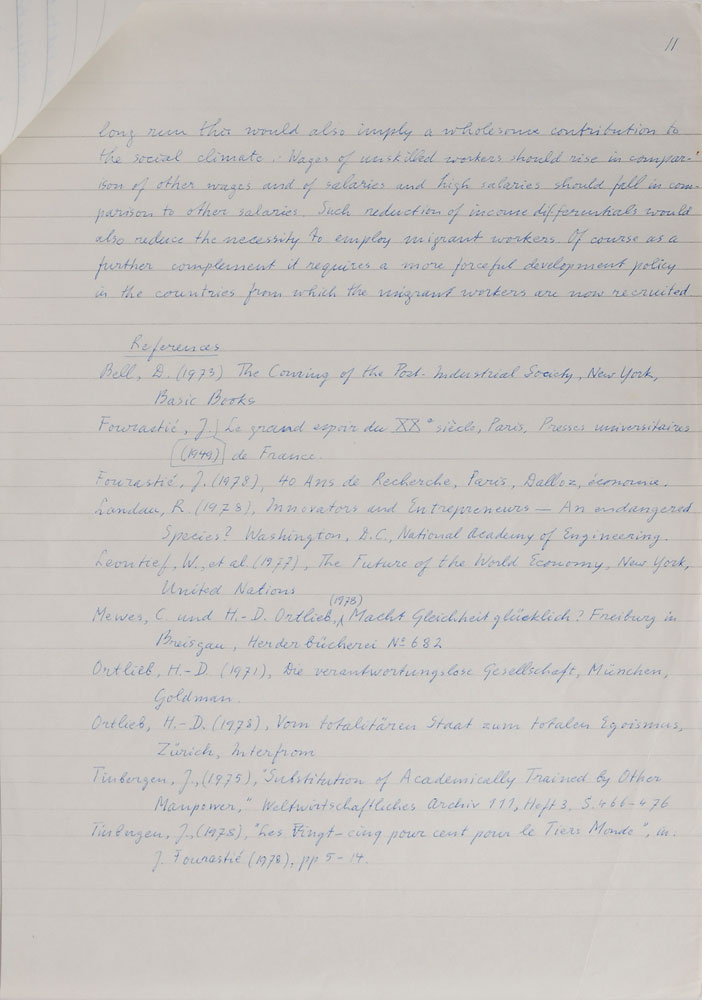 11
long run this would also imply a wholesome contribution to
the social climate: Wages of unskilled workers should rise in compar-
ison of other wages and of salaries and high salaries should fall in com-
parison to other salaries. Such reduction of income differentials would
also reduce the necessity to employ migrant workers. Of course as a
further complement it requires a more forceful development policy
in the countries from which the migrant workers are now recruited
References
Bell, D. (1973) The Coming of the Post-Industrial Society, New York,
Basic Books
Fourastié, J. Le grand espoir du XXe siècle, Paris, Presses universitaires
(1949) de France.
Fourastié, J. (1978), 40 Ans de Recherche, Paris, Dalloz, économie.
Landau, R. (1978), Innovators and Entrepreneurs — An endangered
Species? Washington, D.C., National Academy of Engineering.
Leontief, W., et al. (1977), The Future of the World Economy, New York,
United Nations
(1978)
Mewes, C. und H.-D. Ortlieb, Macht Gleichheit glücklich? Freiburg in
Breisgau, Herderbücherei No 682
Ortlieb, H.-D. (1971), Die verantwortungslose Gesellschaft, München,
Goldman.
Ortlieb, H.-D. (1978), Vom totalitären Staat zum totalen Egoismus,
Zürich, Interfrom
Tinbergen, J., (1975), "Substitution of Academically Trained by Other
Manpower," Weltwirtschaftliches Archiv 111, Heft 3, S. 466-476
Tinbergen, J., (1978), "Les Vingt-cinq pour cent pour le Tiers Monde", in:
J. Fourastié (1978), pp 5-14.